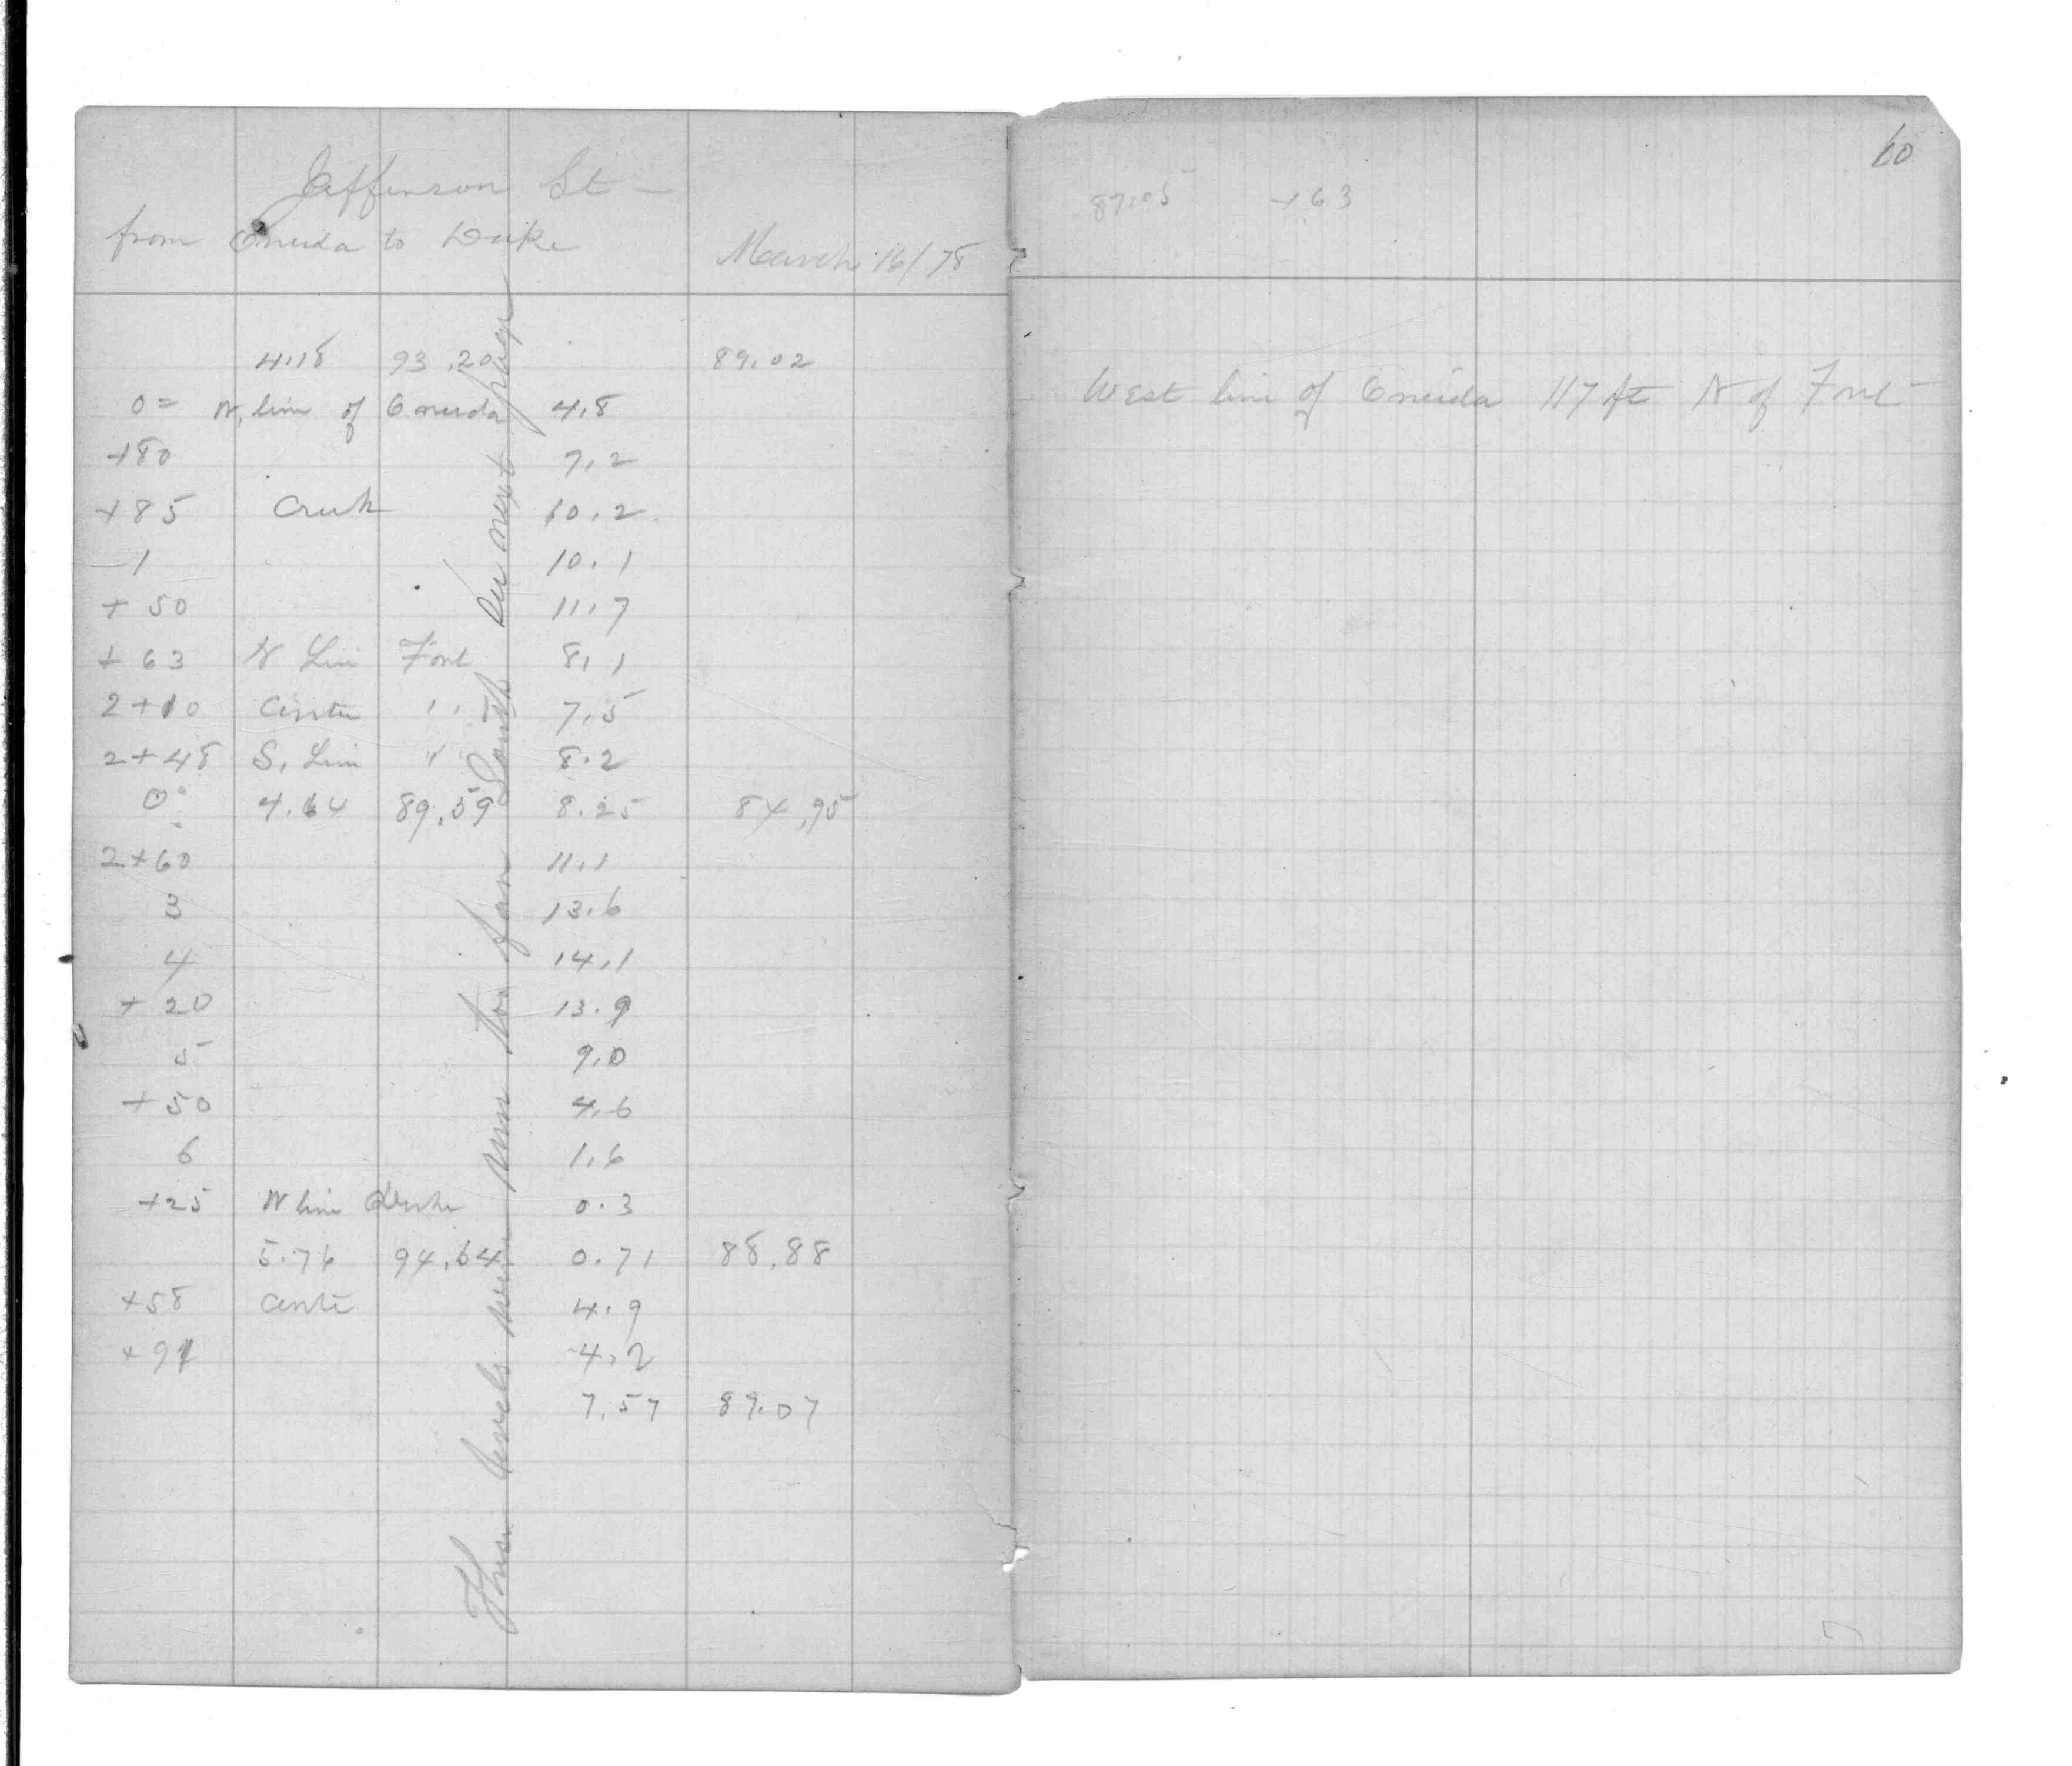 Jefferson St —
from Oneida to Duke March 16/78
4.18 93.20 89.02
0= N. line of Oneida 4.8
+80 7.2
+85 Creek 10.2
1 10.1
+50 11.7
+63 N Line Font 8.1
2+10 Center " 7.5
2+48 S. Line " 8.2
0 4.64 89.59 8.25 84.95
2+60 11.1
3 13.6
4 14.1
+20 13.9
5 9.0
+50 4.6
6 1.6
+25 N line Duke 0.3
5.76 94.64 0.71 88.88
+58 Cente 4.9
+91 4.2
7.57 87.07
These levels were run too far South See next page
60
87.05 +63
West line of Oneida 117 ft N of Font